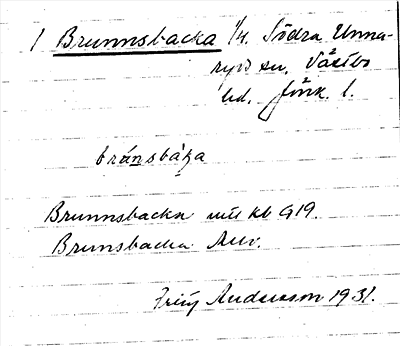 1 Brunnsbacka 1/4. Södra Unna-
ryds sn. Västbo
hd. Jönk. l.
bránsbáka
Brunnsbacka kb G19.
Brunsbacka
Andersson 1931.